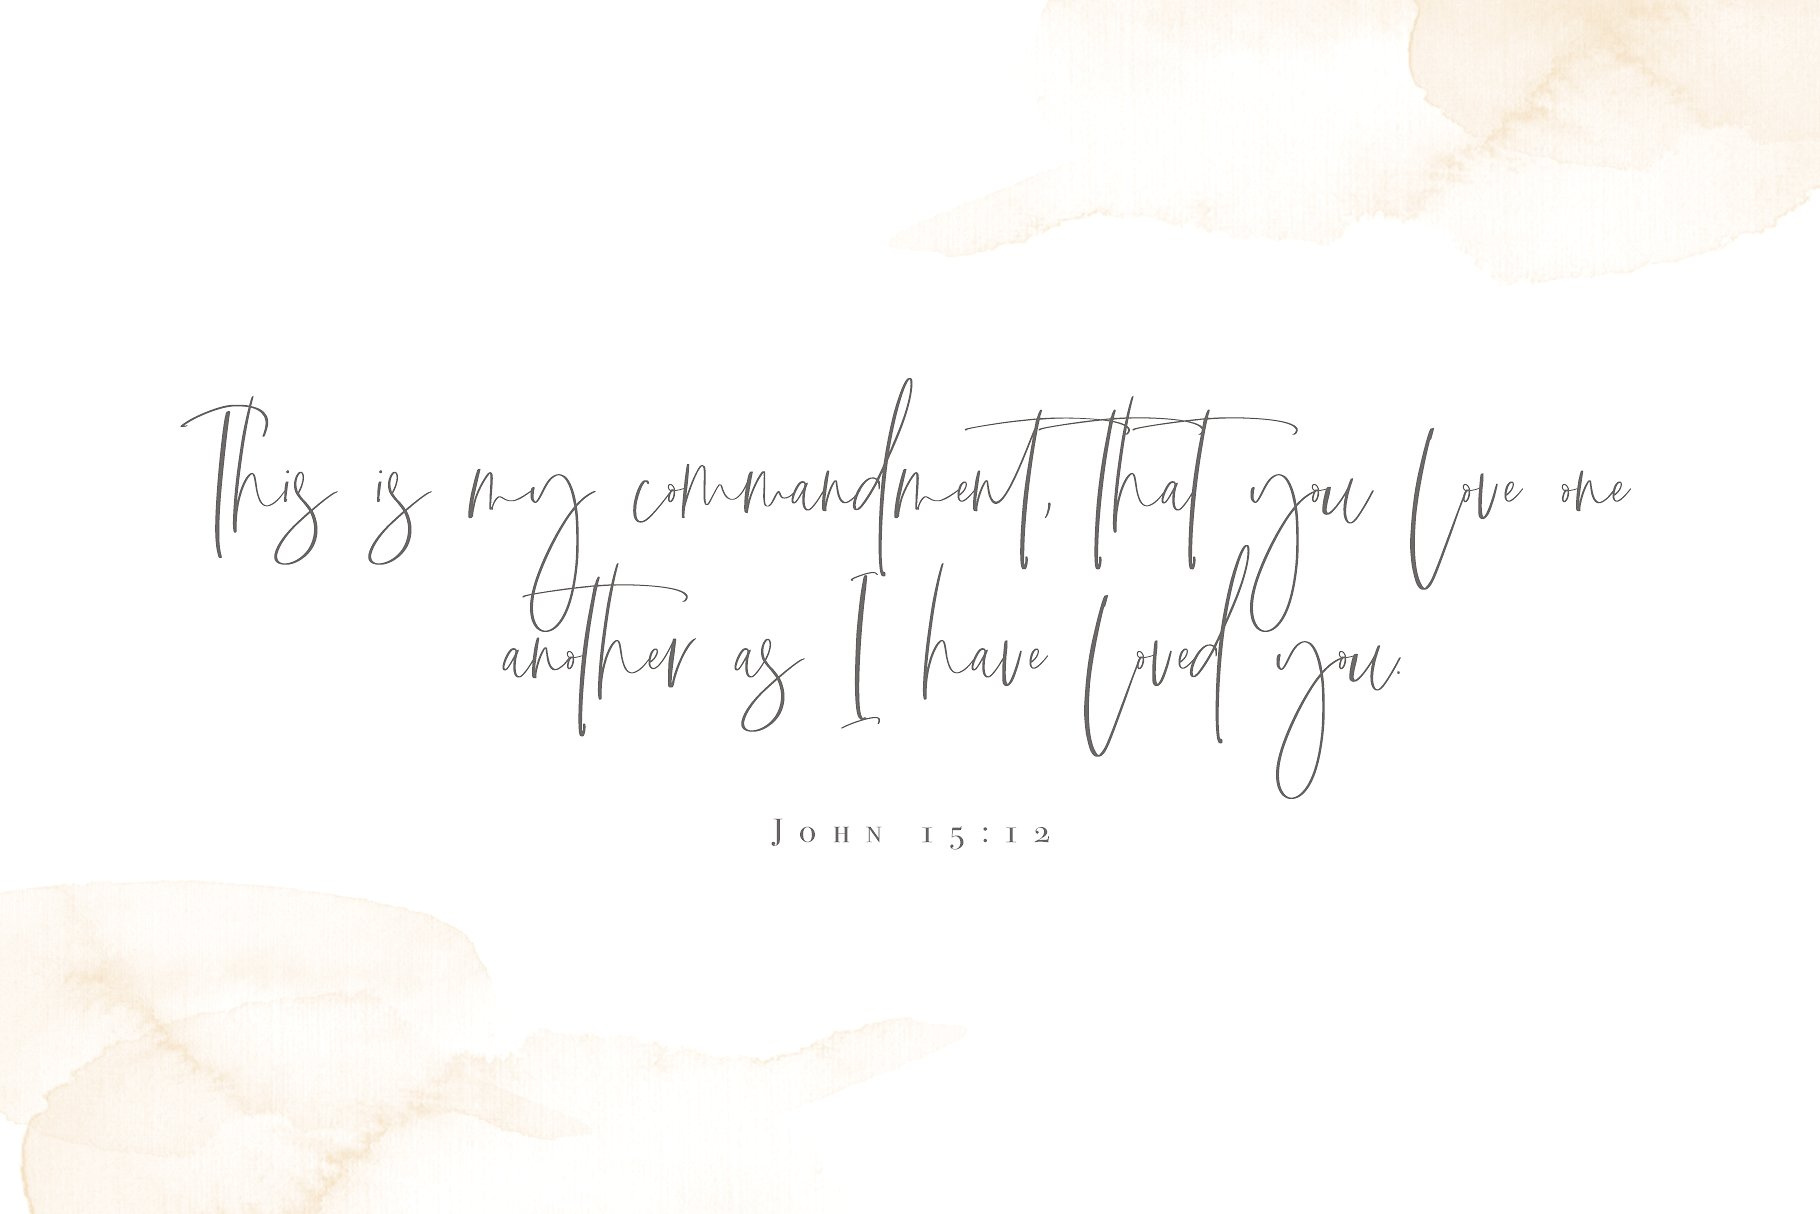 This is my commandment, that you love one
another as I have loved you.
John 15:12